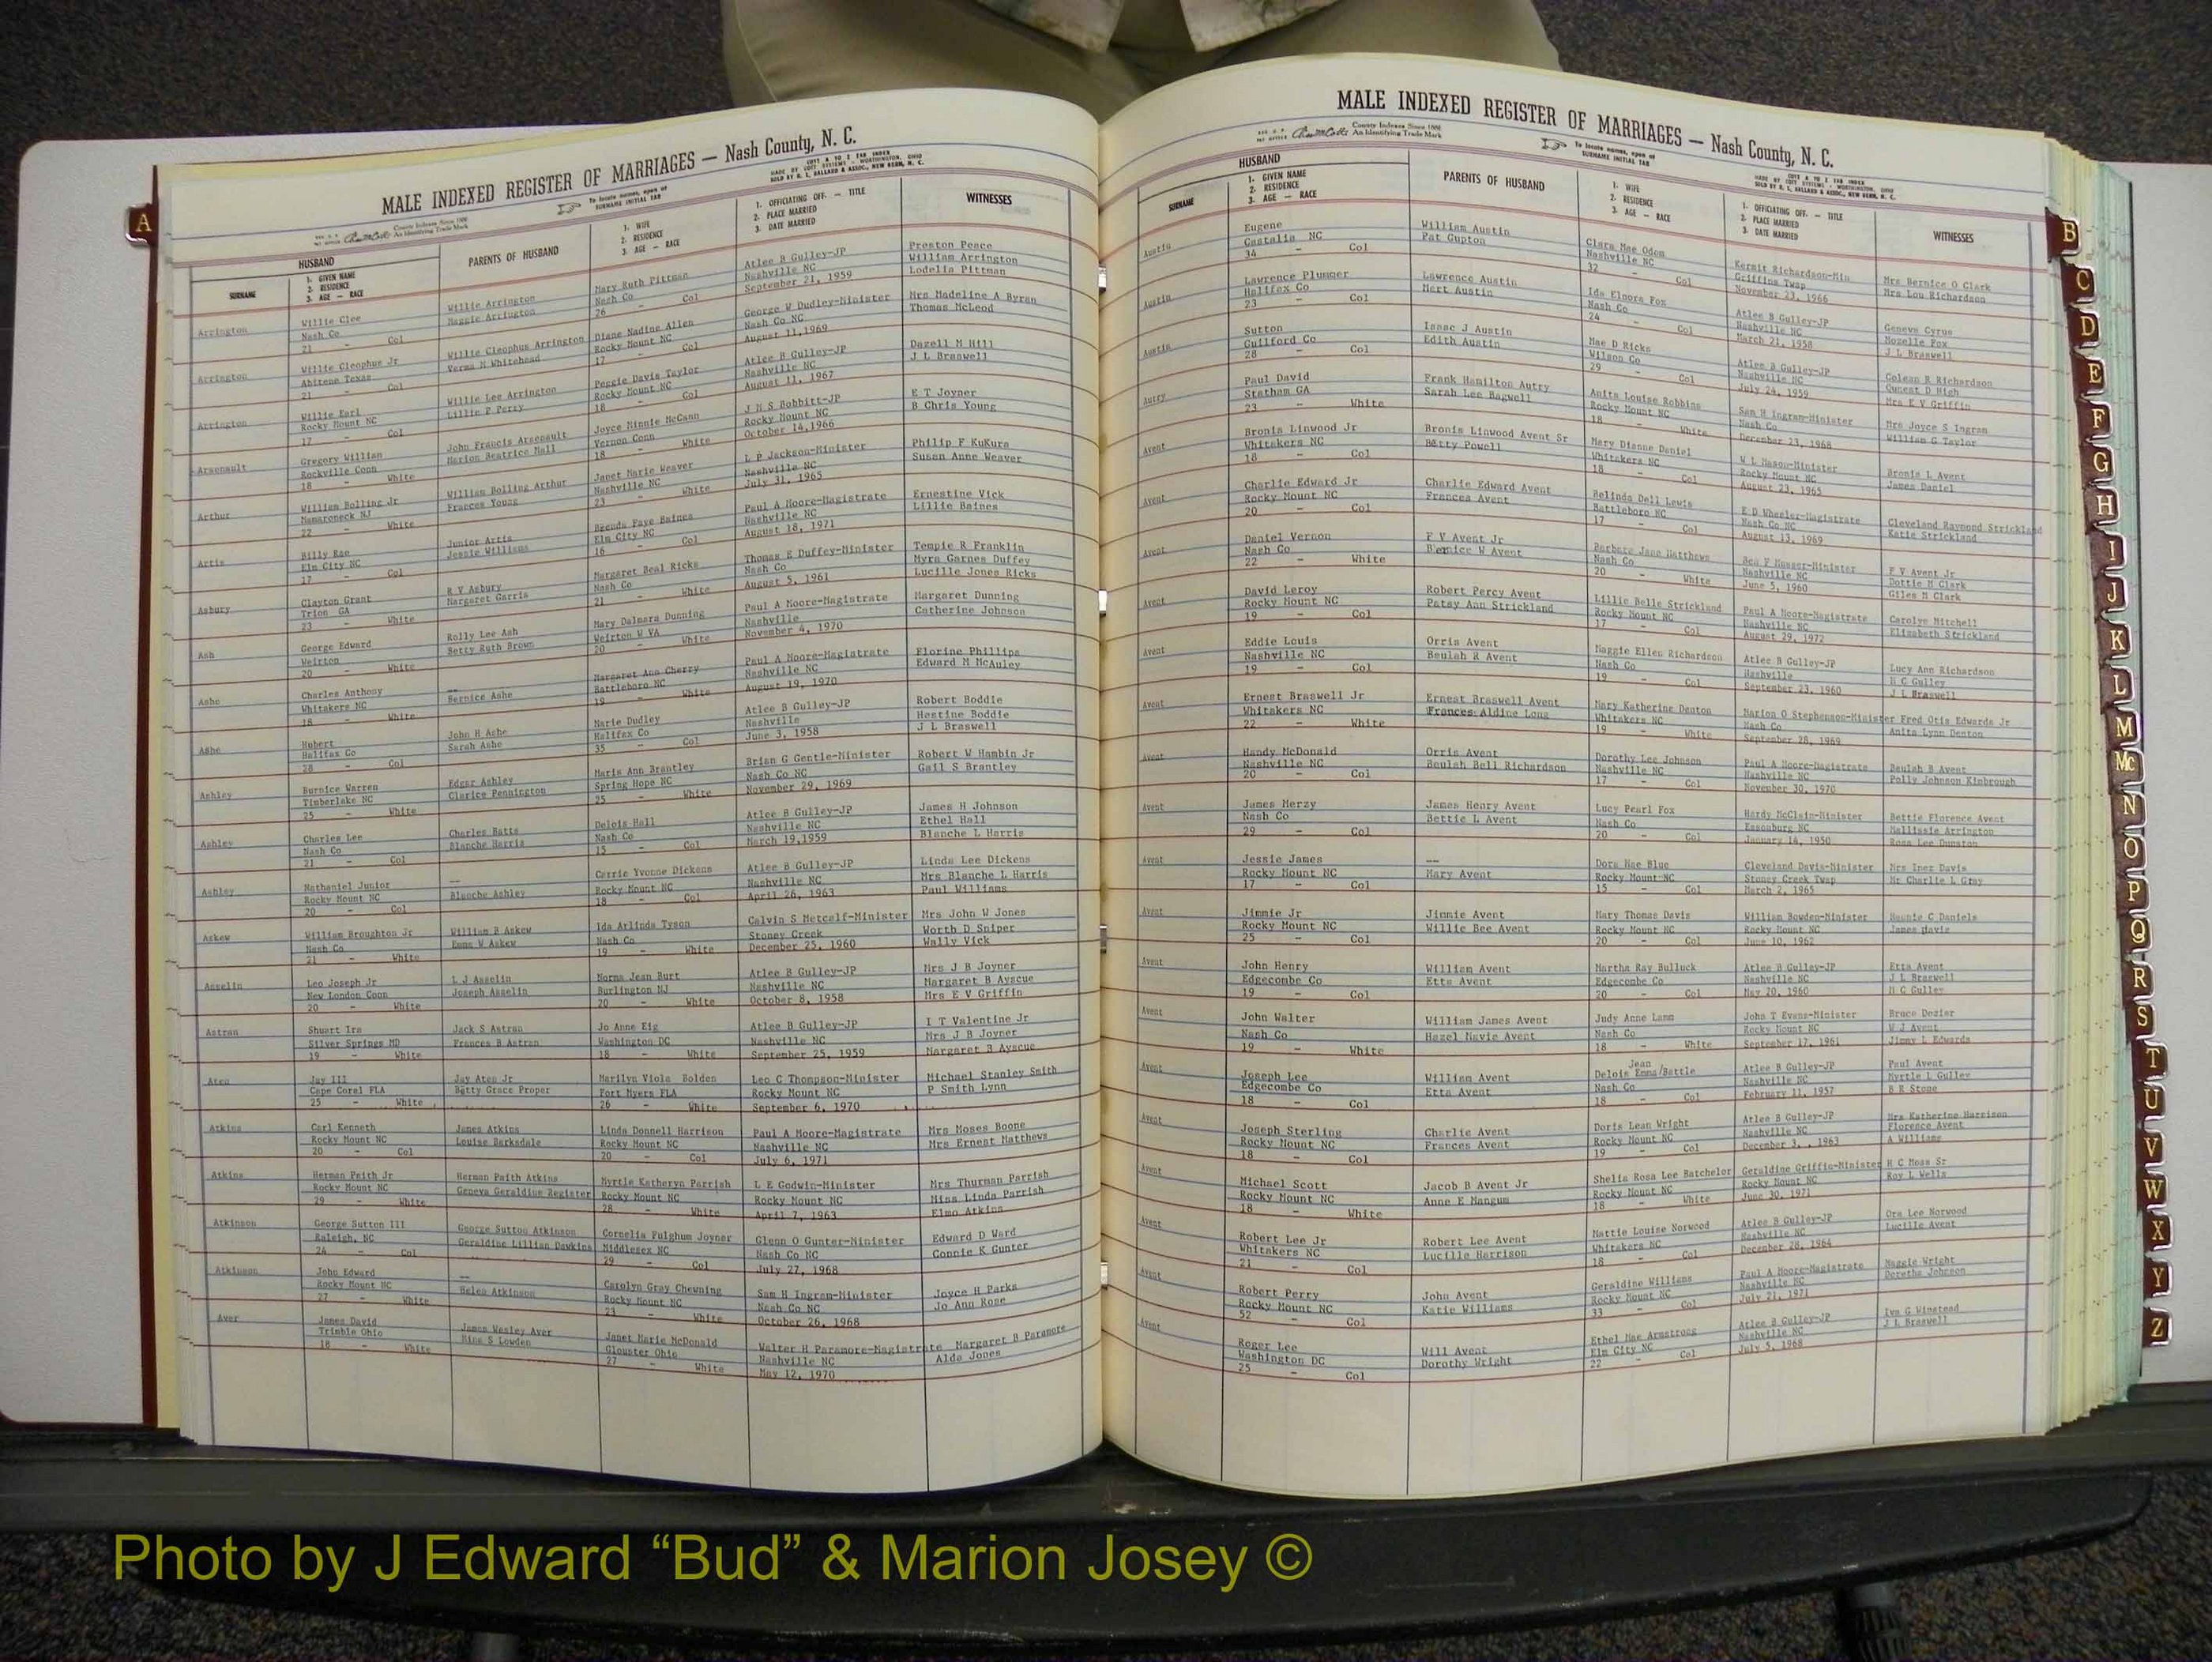 MALE INDEXED REGISTER OF MARRIAGES — Nash County, N. C.
County Indexes Since 1888
An Identifying Trade Mark
To locate names, open at
SURNAME INITIAL TAB
HUSBAND
SURNAME
1. GIVEN NAME
2. RESIDENCE
3. AGE — RACE
PARENTS OF HUSBAND
1. WIFE
2. RESIDENCE
3. AGE — RACE
1. OFFICIATING OFF. - TITLE
2. PLACE MARRIED
3. DATE MARRIED
WITNESSES
Arrington Willie Clee Willie Arrington Mary Ruth Pittman Atlee B Gulley-JP Preston Peace
Nash Co Maggie Arrington Nash Co Nashville NC William Arrington
21 - Col 26 - Col September 21, 1959 Lodelia Pittman
Arrington Willie Cleophus Jr Willie Cleophus Arrington Diane Nadine Allen George W Dudley-Minister Mrs Madeline A Byran
Abitene Texas Verma M Whitehead Rocky Mount NC Nash Co NC Thomas McLeod
21 - Col 17 - Col August 11,1969
Arrington Willie Earl Willie Lee Arrington Peggie Davis Taylor Atlee B Gulley-JP Dazell M Hill
Rocky Mount NC Lillie P Perry Rocky Mount NC Nashville NC J L Braswell
17 - Col 18 - Col August 11, 1967
Arsenault Gregory William John Francis Arsenault Joyce Minute McCann J N S Bobbitt-JP E T Joyner
Rockville Conn Marion Beatrice Hall Vernon Conn Rocky Mount NC B Chris Young
18 - White 18 - White October 14,1966
Arthur William Bolling Jr William Bolling Arthur Janet Marie Weaver L P Jackson-Minister Philip F KuKura
Mamaroneck NJ Frances Young Nashville NC Nashville NC Susan Anne Weaver
22 - White 23 - White July 31, 1965
Artis Billy Rae Junior Artis Brenda Faye Baines Paul A Moore-Magistrate Ernestine Vick
Elm City NC Jessie Williams Elm City NC Nashville NC Lillie Baines
17 - Col 16 - Col August 18, 1971
Asbury Clayton Grant R V Asbury Margaret Beal Ricks Thomas E Duffey-Minister Tempie R Franklin
Trion GA Margaret Garris Nash Co Nash Co Myra Garnes Duffey
23 - White 21 - White August 5, 1961 Lucille Jones Ricks
Ash George Edward Rolly Lee Ash Mary Dalmara Dunning Paul A Moore-Magistrate Margaret Dunning
Weirton Betty Ruth Brown Weirton W VA Nashville Catherine Johnson
20 - White 20 - White November 4, 1970
Ashe Charles Anthony -- Margaret Ann Cherry Paul A Moore-Magistrate Florine Phillips
Whitakers NC Bernice Ashe Battleboro NC Nashville NC Edward M McAuley
18 - White 19 - White August 19, 1970
Ashe Hubert John H Ashe Marie Dudley Atlee B Gulley-JP Robert Boddie
Halifax Co Sarah Ashe Halifax Co Nashville Hestine Boddie
28 - Col 35 - Col June 3, 1958 J L Braswell
Ashley Burnice Warren Edgar Ashley Maris Ann Brantley Brian G Gentle-Minister Robert W Hambin Jr
Timberlake NC Clarice Pennington Spring Hope NC Nash Co NC Gail S Brantley
25 - White 25 - White November 29, 1969
Ashley Charles Lee Charles Batts Delois Hall Atlee B Gulley-JP James H Johnson
Nash Co Blanche Harris Nash Co Nashville NC Ethel Hall
21 - Col 15 - Col March 19,1959 Blanche L Harris
Ashley Nathaniel Junior -- Carrie Yvonne Dickens Atlee B Gulley-JP Linda Lee Dickens
Rocky Mount NC Blanche Ashley Rocky Mount NC Nashville NC Mrs Blanche L Harris
20 - Col 18 - Col April 26, 1963 Paul Williams
Askew William Broughton Jr William B Askew Ida Arlinda Tyson Calvin S Metcalf-Minister Mrs John W Jones
Nash Co Emma W Askew Nash Co Stoney Creek Worth D Sniper
21 - White 19 - White December 25, 1960 Wally Vick
Asselin Leo Joseph Jr L J Asselin Norma Jean Burt Atlee B Gulley-JP Mrs J B Joyner
New London Conn Joseph Asselin Burlington NJ Nashville NC Margaret B Ayscue
20 - White 20 - White October 8, 1958 Mrs E V Griffin
Astran Shuart Ira Jack S Astran Jo Anne Eig Atlee B Gulley-JP I T Valentine Jr
Silver Springs MD Frances B Astran Washington DC Nashville NC Mrs J B Joyner
19 - White 18 - White September 25, 1959 Margaret B Ayscue
Aten Jay III Jay Aten Jr Marilyn Viola Bolden Leo C Thompson-Minister Michael Stanley Smith
Cape Corel FLA Betty Grace Proper Fort Myers FLA Rocky Mount NC P Smith Lynn
25 - White 26 - White September 6, 1970
Atkins Carl Kenneth James Atkins Linda Donnell Harrison Paul A Moore-Magistrate Mrs Moses Boone
Rocky Mount NC Louise Barksdale Rocky Mount NC Nashville NC Mrs Ernest Matthews
20 - Col 20 - Col July 6, 1971
Atkins Herman Faith Jr Herman Faith Atkins Myrtle Katheryn Parrish L E Godwin-Minister Mrs Thurman Parrish
Rocky Mount NC Geneva Geraldine Register Rocky Mount NC Rocky Mount NC Miss Linda Parrish
29 - White 28 - White April 7, 1963 Elmo Atkins
Atkinson George Sutton III George Sutton Atkinson Cornelia Fulghum Joyner Glenn O Gunter-Minister Edward D Ward
Raleigh, NC Geraldine Lillian Dawkins Middlesex NC Nash Co NC Connie K Gunter
24 - Col 29 - Col July 27, 1968
Atkinson John Edward -- Carolyn Gray Chewning Sam H Ingram-Minister Joyce H Parks
Rocky Mount NC Helen Atkinson Rocky Mount NC Nash Co NC Jo Ann Rose
27 - White 23 - White October 26, 1968
Aver James David James Wesley Aver Janet Marie McDonald Walter H Paramore-Magistrate Margaret B Paramore
Trimble Ohio Rina S Lowden Glouster Ohio Nashville NC Alda Jones
18 - White 27 - White May 12, 1970
MALE INDEXED REGISTER OF MARRIAGES — Nash County, N. C.
County Indexes Since 1888
An Identifying Trade Mark
To locate names, open at
SURNAME INITIAL TAB
HUSBAND
SURNAME
1. GIVEN NAME
2. RESIDENCE
3. AGE — RACE
PARENTS OF HUSBAND
1. WIFE
2. RESIDENCE
3. AGE — RACE
1. OFFICIATING OFF. - TITLE
2. PLACE MARRIED
3. DATE MARRIED
WITNESSES
Austin Eugene William Austin Clara Mae Odom Kermit Richardson-Min Mrs Bernice O Clark
Castalia NC Pat Gupton Nashville NC Griffins Twsp Mrs Lou Richardson
34 - Col 32 - Col November 23, 1966
Austin Lawrence Plummer Lawrence Austin Ida Elnora Fox Atlee B Gulley-JP Geneva Cyrus
Halifax Co Mert Austin Nash Co Nashville NC Mozelle Fox
23 - Col 24 - Col March 21, 1958 J L Braswell
Austin Sutton Isaac J Austin Mae D Ricks Atlee B Gulley-JP Colean R Richardson
Guilford Co Edith Austin Wilson Co Nashville NC Queest D High
28 - Col 29 - Col July 24, 1959 Mrs E V Griffin
Autry Paul David Frank Hamilton Autry Anita Louise Robbins Sam H Ingram-Minister Mrs Joyce S Ingram
Statham GA Sarah Lee Bagwell Rocky Mount NC Nash Co William G Taylor
23 - White 18 - White December 23, 1968
Avent Bronis Linwood Jr Bronis Linwood Avent Sr Mary Dianne Daniel W L Mason-Minister Bronis L Avent
Whitakers NC Betty Powell Whitakers NC Rocky Mount NC James Daniel
18 - Col 18 - Col August 23, 1965
Avent Charlie Edward Jr Charlie Edward Avent Belinda Dell Lewis E D Wheeler-Magistrate Cleveland Raymond Strickland
Rocky Mount NC Frances Avent Battleboro NC Nash Co NC Katie Strickland
20 - Col 17 - Col August 13, 1969
Avent Daniel Vernon F V Avent Jr Barbara Jane Matthews Ben F Musser-Minister F V Avent Jr
Nash Co Bernice W Avent Nash Co Nashville NC Dottie M Clark
22 - White 20 - White June 5, 1960 Giles M Clark
Avent David Leroy Robert Percy Avent Lillie Belle Strickland Paul A Moore-Magistrate Carolyn Mitchell
Rocky Mount NC Patsy Ann Strickland Rocky Mount NC Nashville NC Elizabeth Strickland
19 - Col 17 - Col August 29, 1972
Avent Eddie Louis Orris Avent Maggie Ellen Richardson Atlee B Gulley-JP Lucy Ann Richardson
Nashville NC Beulah R Avent Nash Co Nashville M C Gulley
19 - Col 19 - Col September 23, 1960 J L Braswell
Avent Ernest Braswell Jr Ernest Braswell Avent Mary Katherine Denton Marion O Stephenson-Minister Fred Otis Edwards Jr
Whitakers NC Frances Aldine Long Whitakers NC Nash Co Anita Lynn Denton
22 - White 19 - White September 28, 1969
Avent Handy McDonald Orris Avent Dorothy Lee Johnson Paul A Moore-Magistrate Beulah B Avent
Nashville NC Beulah Bell Richardson Nashville NC Nashville NC Polly Johnson Kinbrough
20 - Col 17 - Col November 30, 1970
Avent James Merzy James Henry Avent Lucy Pearl Fox Hardy McClain-Minister Bettie Florence Avent
Nash Co Bettie L Avent Nash Co Essenburg NC Mallissie Arrington
29 - Col 20 - Col January 14, 1950 Rosa Lee Dunston
Avent Jessie James -- Dora Mae Blue Cleveland Davis-Minister Mrs Inez Davis
Rocky Mount NC Mary Avent Rocky Mount NC Stoney Creek Twsp Mr Charlie L Gray
17 - Col 15 - Col March 2, 1965
Avent Jimmie Jr Jimmie Avent Mary Thomas Davis William Bowden-Minister Bennie C Daniels
Rocky Mount NC Willie Bee Avent Rocky Mount NC Rocky Mount NC James Davis
25 - Col 20 - Col June 10, 1962
Avent John Henry William Avent Martha Ray Bulluck Atlee B Gulley-JP Etta Avent
Edgecombe Co Etta Avent Edgecombe Co Nashville NC J L Braswell
19 - Col 20 - Col May 20, 1960 M C Gulley
Avent John Walter William James Avent Judy Anne Lamm John T Evans-Minister Bruce Dozier
Nash Co Hazel Navie Avent Nash Co Rocky Mount NC W J Avent
19 - White 18 - White September 17, 1961 Jimmy L Edwards
Avent Joseph Lee William Avent Delois Emma/Battle Jean Atlee B Gulley-JP Paul Avent
Edgecombe Co Etta Avent Nash Co Nashville NC Myrtle L Gulley
18 - Col 18 - Col February 11, 1957 B R Stone
Avent Joseph Sterling Charlie Avent Doris Lean Wright Atlee B Gulley-JP Mrs Katherine Harrison
Rocky Mount NC Frances Avent Rocky Mount NC Nashville NC Florence Avent
18 - Col 19 - Col December 3, , 1963 A Williams
Avent Michael Scott Jacob B Avent Jr Shelia Rosa Lee Batchelor Geraldine Griffin-Minister H C Moss Sr
Rocky Mount NC Anne E Mangum Rocky Mount NC Rocky Mount NC Roy L Wells
18 - White 18 - White June 30, 1971
Avent Robert Lee Jr Robert Lee Avent Mattie Louise Norwood Atlee B Gulley-JP Ora Lee Norwood
Whitakers NC Lucille Harrison Whitakers NC Nashville NC Lucille Avent
21 - Col 18 - Col December 28, 1964
Avent Robert Perry John Avent Geraldine Williams Paul A Moore-Magistrate Maggie Wright
Rocky Mount NC Katie Williams Rocky Mount NC Nashville NC Doretha Johnson
52 - Col 33 - Col July 21, 1971
Avent Roger Lee Will Avent Ethel Mae Armstrong Atlee B Gulley-JP Iva G Winstead
Washington DC Dorothy Wright Elm City NC Nashville NC J L Braswell
25 - Col 22 - Col July 5, 1968
A
B
C
D
E
F
G
H
I
J
K
L
M
Mc
N
O
P
Q
R
S
T
U
V
W
X
Y
Z
Photo by J Edward “Bud” & Marion Josey ©